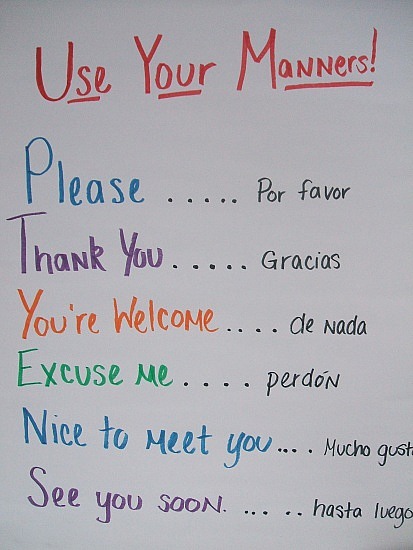 Use Your Manners!
Please ..... Por favor
Thank You ..... Gracias
You're Welcome .... de nada
Excuse me .... perdón
Nice to meet you.... Mucho gust
See you soon. ... .. hasta luego